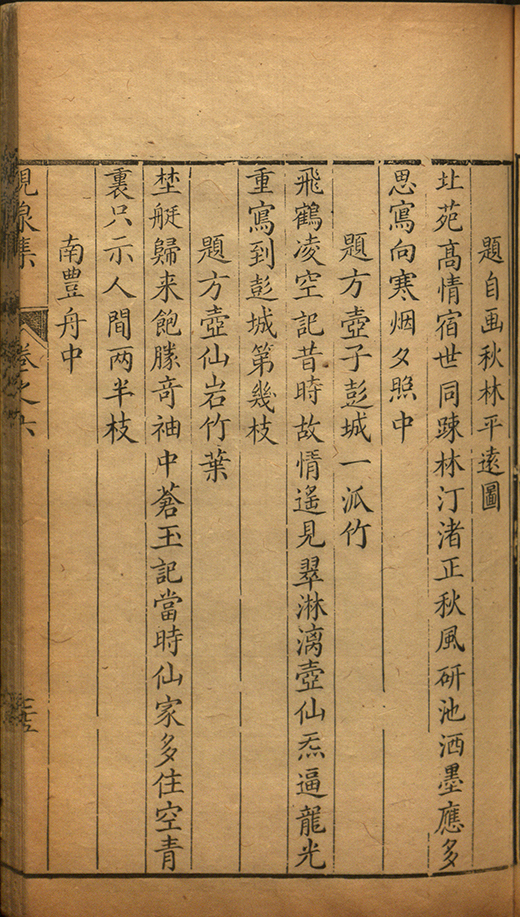 題自画秋林平遠圖
㘩苑高情宿世同踈林汀渚正秋風研池洒墨應多
思寫向寒烟夕照中
題方壺子彭城一派竹
飛鶴凌空記昔時故情遙見翠淋漓壺仙炁逼龍光
重寫到彭城第幾枝
題方壺仙岩竹葉
埜艇歸来飽賸竒袖中蒼玉記當時仙家多住空青
裏只示人間两半枝
南豐舟中
峴泉集
卷之六